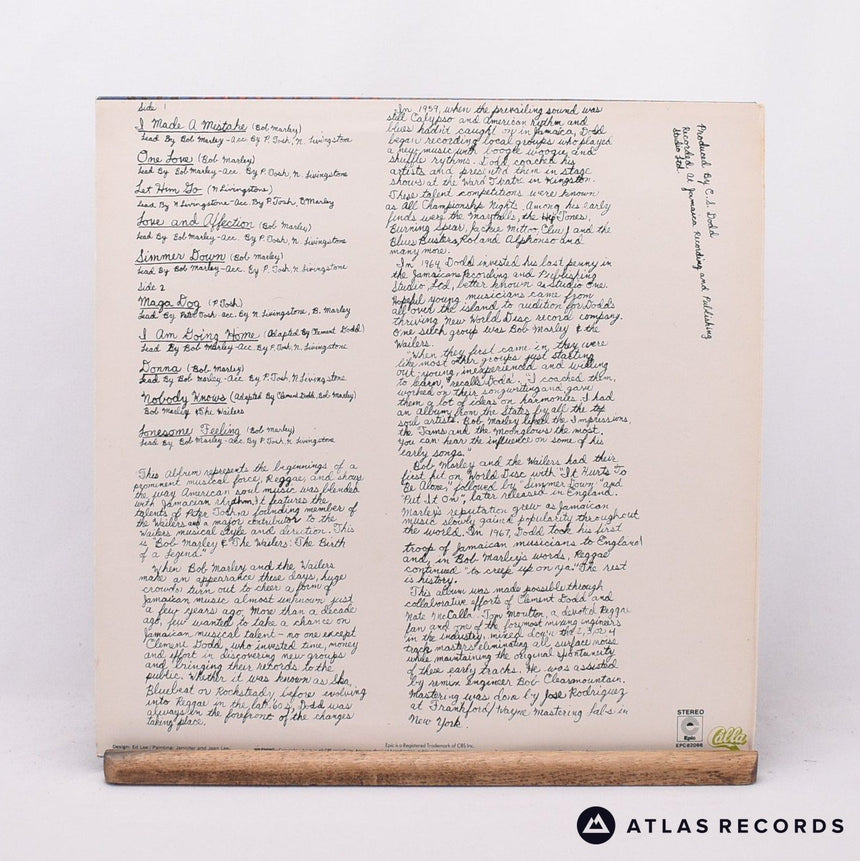 Side 1
I Made A Mistake (Bob Marley)
Lead By Bob Marley-Acc. By P. Tosh, N. Livingstone
One Love (Bob Marley)
Lead By Bob Marley-Acc. By P. Tosh, N. Livingstone
Let Him Go (N Livingstone)
Lead By N Livingstone-Acc. By P.Tosh, B.Marley
Love and Affection (Bob Marley)
Lead By Bob Marley-Acc. By P. Tosh, N. Livingstone
Simmer Down (Bob Marley)
Lead By Bob Marley-Acc. By P. Tosh, N. Livingstone
Side 2
Maga Dog (P.Tosh)
Lead By Peter Tosh acc. By N. Livingstone, B. Marley
I Am Going Home (Adapted By Clement Dodd)
Lead By Bob Marley-Acc. By P. Tosh, N. Livingstone
Donna (Bob Marley)
Lead By Bob Marley-Acc By P. Tosh, N Livingstone
Nobody Knows (Adapted By Clement Dodd, Bob Marley)
Bob Marley & The Wailers
Lonesome Feeling (Bob Marley)
Lead By Bob Marley-Acc. By P. Tosh, N. Livingstone
This Album represents the beginnings of a
prominent musical force, Reggae, and shows
the way American soul music was blended
with Jamacian rhythm. It features the
talents of Peter Tosh, a founding member of
the Wailers and a major contributor to the
Wailers musical style and direction. This
is "Bob Marley & The Wailers: The Birth
of a Legend"
When Bob Marley and the Wailers
make an appearance these days, huge
crowds turn out to cheer a form of
Jamaican music almost unknown just
a few years ago. More than a decade
ago, few wanted to take a chance on
Jamaican musical talent - no one except
Clement Dodd, who invested time, money
and effort in discovering new groups
and bringing their records to the
public. Whether it was known as Ska,
Bluebeat or Rocksteady before evolving
into Reggae in the late 60's, Dodd was
always in the forefront of the changes
taking place.
In 1959, when the prevailing sound was
still Calypso and American rhythm and
blues hadn't caught on in Jamaica, Dodd
began recording local groups who played
a new music with boogie woogie and
shuffle rythms. Dodd coached his
artists and presented them in stage
shows at the Ward Theatre in Kingston.
These talent competitions were known
as All Championship Nights. Among his early
finds were the Maytalls, the Hep Tones,
Burning Spear, Jackie Mittoo, Clue J and the
Blues Busters, Roland Alphonso and
many more.
In 1964, Dodd invested his last penny in
the Jamaican Recording and Publishing
Studio, Ltd, better known as Studio One.
Hopeful young musicians came from
all over the island to audition for Dodds
thriving New World Disc record company.
One such group was Bob Marley & the
Wailers.
"When they first came in, they were
like most other groups just starting
out - young, inexperienced and willing
to learn," recalls Dodd. "I coached them,
worked on their songwriting and gave
them a lot of ideas on harmonies. I had
an album from the States by all the top
soul artists. Bob Marley liked the Impressions,
the Tams and the Moonglows the most.
You can hear the influence on some of his
early songs."
Bob Marley and the Wailers had their
first hit on World Disc with "It Hurts To
Be Alone," followed by "Simmer Down," and
"Put It On", later released in England.
Marley's reputation grew as Jamaican
music slowly gained popularity throughout
the world. In 1967, Dodd took his first
troop of Jamaican musicians to England
and, in Bob Marley's words, Reggae
continued "to creep up on ya." The rest
is history.
This album was made possible through
collaborative efforts of Clement Dodd and
Nate McCalla. Tom Moulton, a devoted Reggae
fan and one of the foremost mixing engineers
in the industry, mixed down the 2, 3 or 4
track masters eliminating all surface noise
while maintaining the original spontaneity
of these early tracks. He was assisted
by remix engineer Bob Clearmountain.
Mastering was done by Jose Rodriguez
at Frankford/Wayne Mastering Labs in
New York.
Produced By C.S. Dodd
Recorded At Jamaica Recording and Publishing
Studio Ltd
STEREO
Epic
EPC 82066
Calla
Design: Ed Lee / Painting: Jennifer and Jean Lee.
Epic is a Registered Trademark of CBS Inc.
ATLAS RECORDS